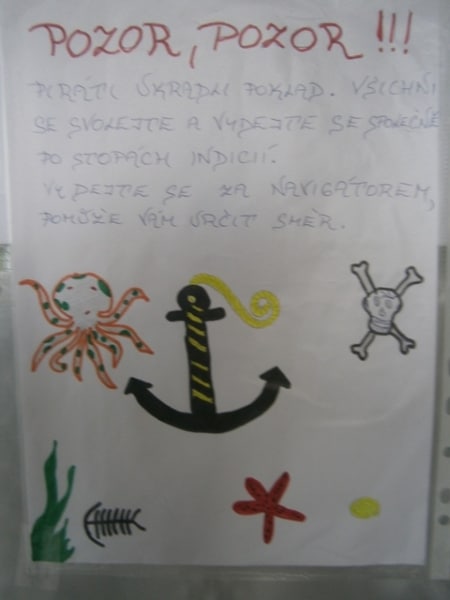 POZOR, POZOR !!!
PIRÁTI UKRADLI POKLAD. VŠICHNI
SE SVOLEJTE A VYDEJTE SE SPOLEČNĚ
PO STOPÁCH INDICIÍ.
VYDEJTE SE ZA NAVIGÁTOREM,
POMŮŽE VÁM URČIT SMĚR.